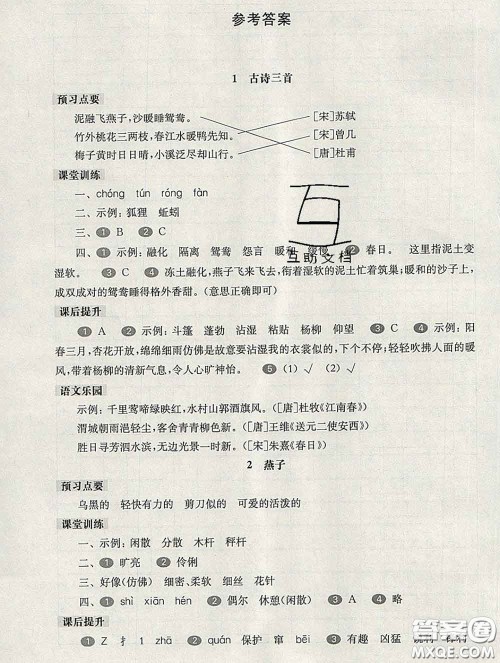 参考答案
1 古诗三首
预习点要
泥融飞燕子,沙暖睡鸳鸯。 [宋]苏轼
竹外桃花三两枝,春江水暖鸭先知。 [宋]曾几
梅子黄时日日晴,小溪泛尽却山行。 [唐]杜甫
课堂训练
一、chóng tún róng fàn
二、示例:狐狸 蚯蚓
三、1 B 2 C
四、1 示例:融化 隔离 鸳鸯 怨言 暖和 缓慢 2 春日。 这里指泥土变
湿软。 3 C 4 冻土融化,燕子飞来飞去,衔着湿软的泥土忙着筑巢;暖和的沙子上,
成双成对的鸳鸯睡得格外香甜。(意思正确即可)
课后提升
1 A 2 示例:斗篷 蓬勃 沾湿 粘贴 杨柳 仰望 3 C 4 示例:阳
春三月,杏花开放,绵绵细雨仿佛是故意要沾湿我的衣裳似的,下个不停;轻轻吹拂人面的暖
风,带着杨柳的清新气息,令人心旷神怡。 5 (1) √ (2) √
语文乐园
示例:千里莺啼绿映红,水村山郭酒旗风。([唐]杜牧《江南春》)
渭城朝雨浥轻尘,客舍青青柳色新。([唐]王维《送元二使安西》)
胜日寻芳泗水滨,无边光景一时新。([宋]朱熹《春日》)
2 燕子
预习点要
乌黑的 轻快有力的 剪刀似的 可爱的活泼的
课堂训练
一、示例:闲散 分散 木杆 秤杆
二、1 旷亮 2 伶俐
三、好像(仿佛) 细密、柔软 细丝 花针
四、1 shì xiān hén 2 偶尔 休憩(闲散) 3 A 4 略
课后提升
1 Z 扌 1 zhā 2 quán 保护 窜 bēi 3 有趣 凶猛
互
互助文档
答案圈
MXQE.COM